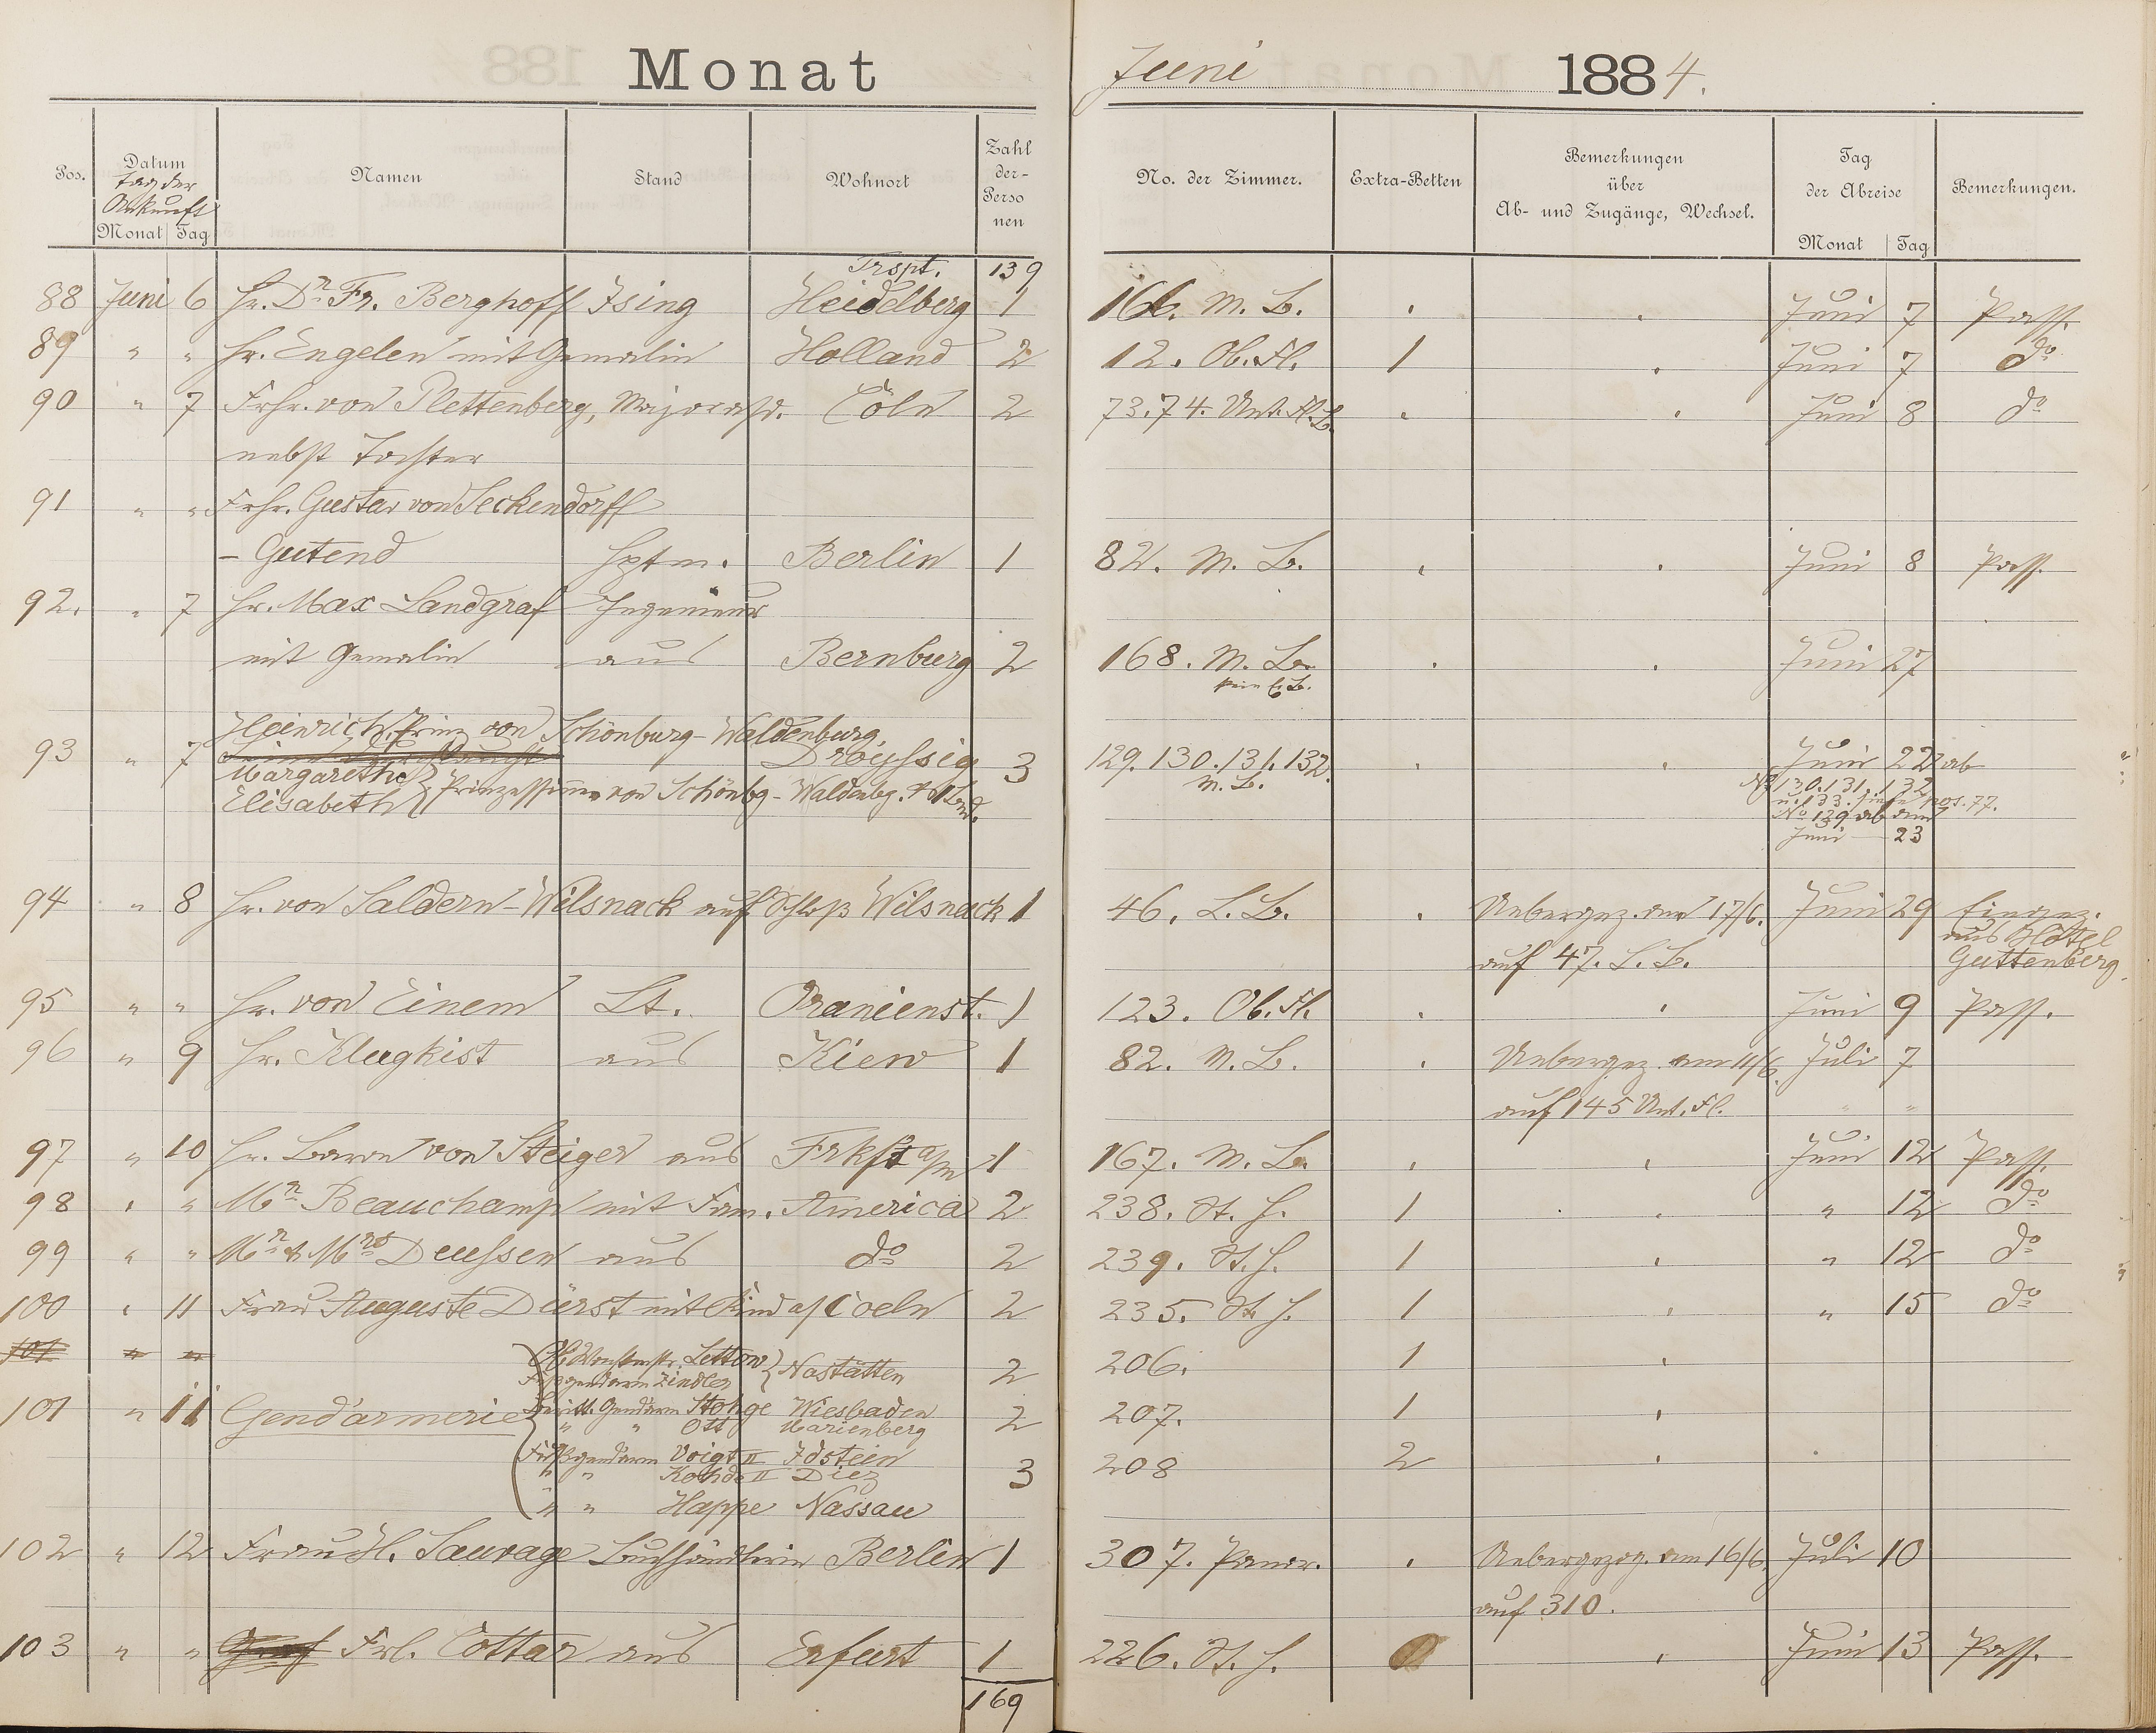 Monat Juni 1884.
Pos. Datum Namen Stand Wohnort Zahl der- Perso nen No. der Zimmer. Extra-Betten Bemerkungen über Ab- und Zugänge, Wechsel. Tag der Abreise Bemerkungen.
Tag der Ankunft
Monat Tag Monat Tag
Trspt. 139
88 Juni 6 Hr. Dr. Fr. Berghoff Ising Heidelberg 1 166. M. B. Juni 7 Pass.
89 " " Hr. Engelen mit Gemalin Holland 2 12. Ob. Fl. 1 Juni 7 do
90 " 7 Frhr. von Plettenberg, Major a/D. Cöln 2 73.74. Unt. Fl. B. Juni 8 do
nebst Tochter
91 " " Frhr. Gustav von Seckendorff
- Gutend Hptm. Berlin 1 82. M. B. Juni 8 Pass.
92. " 7 Hr. Max Landgraf Ingenieur
mit Gemalin aus Bernburg 2 168. M. B. Juni 27
Heinrich, Prinz von Schönburg-Waldenburg,
93 " 7 Droyssig 3 129. 130. 131. 132. Juni 22 ab
Margarethe M. B. No 130. 131. 132
Elisabeth } Prinzessinnen von Schönbg-Waldenbg. u. 133. siehe pos. 77.
No 129 ab am
Juni 23
94 " 8 Hr. von Saldern-Wilsnack auf Schloß Wilsnack 1 46. L. B. Uebergez. am 17/6. Juni 29 Eingez.
auf 47. L. B. aus Hôtel
Guttenberg.
95 " " Hr. von Einem Lt. Oranienst. 1 123. Ob. Fl. Juni 9 Pass.
96 " 9 Hr. Klugkist aus Kiew 1 82. M. B. Uebergez. am 11/6. Juli 7
auf 145 Unt. Fl. " "
97 " 10 Hr. Baron von Steiger aus Frkft a/m 1 167. M. B. Juni 12 Pass.
98 " " Mr. Beauchamp mit Fam. America 2 238. St. H. 1 " 12 do
99 " " Mr. & Mrs Deussen aus do 2 239. St. H. 1 " 12 do
100 " 11 Frau Auguste Dürst mit Kind a/Coeln 2 235. St. H. 1 " 15 do
101 " " Ob. Wachtmstr. Lettow } Nastätten 2 206. 1
Fußgendarm Zindler
101 " 11 Gendarmerie Beritt. Gendarm Stohge Wiesbaden 2 207. 1
" " Ott Marienberg
Fußgendarm Voigt II Idstein 3 208 2
" " II Diez
" " Happe Nassau
102 " 12 Frau H. Sauvage Buchhändlerin Berlin 1 307. Panor. Uebergezog. am 16/6. Juli 10
auf 310.
103 " " Frl. Cottar aus Erfurt 1 226. St. H. Juni 13 Pass.
169